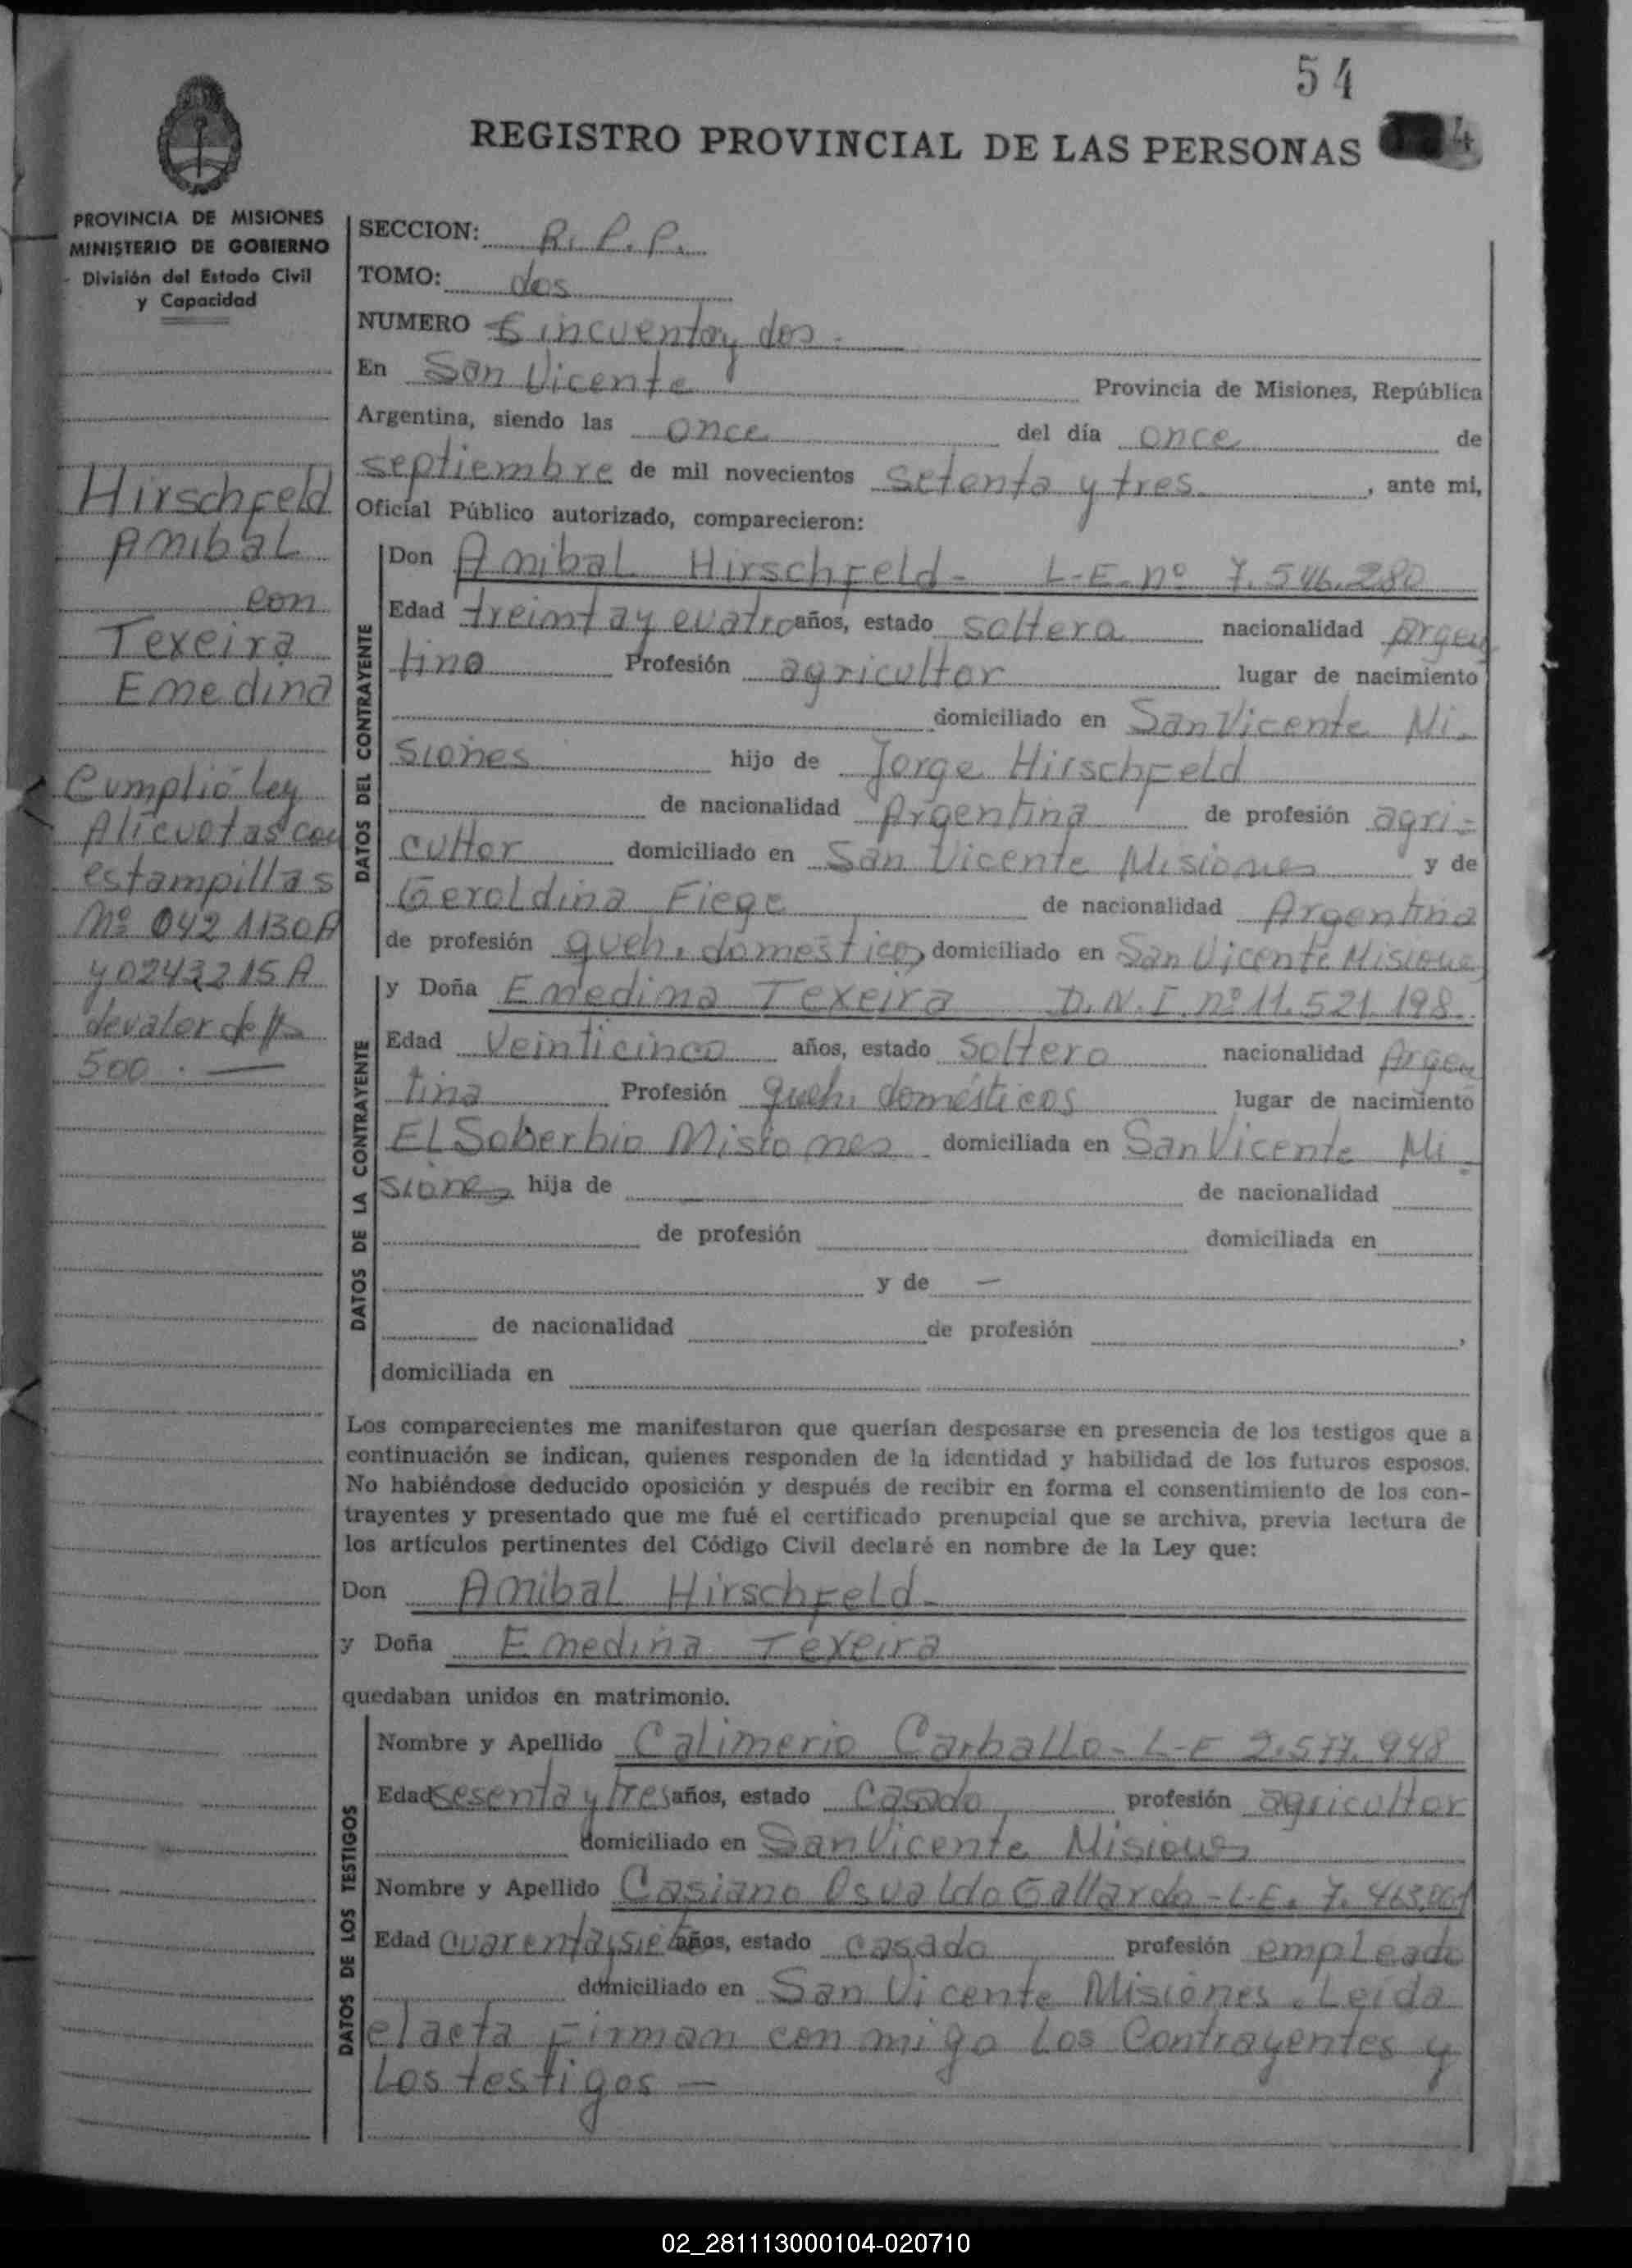 54
REGISTRO PROVINCIAL DE LAS PERSONAS 4
PROVINCIA DE MISIONES
MINISTERIO DE GOBIERNO
División del Estado Civil
y Capacidad
SECCION: R. P. P.
TOMO: dos
NUMERO Cincuenta y dos.
En San Vicente Provincia de Misiones, República
Argentina, siendo las once del día once de
septiembre de mil novecientos setenta y tres, ante mi,
Oficial Público autorizado, comparecieron:
Hirschfeld
Anibal
con
Texeira
Emedina
Cumplió Ley
Alicuotas con
estampillas
Nº 0421130A
y0243215A
de valor de $
500.—
DATOS DEL CONTRAYENTE
Don Anibal Hirschfeld- L-E-nº 7.546.280
Edad treinta y cuatro años, estado soltero nacionalidad Argen
tino Profesión agricultor lugar de nacimiento
domiciliado en San Vicente Mi-
siones hijo de Jorge Hirschfeld
de nacionalidad Argentina de profesión agri-
cultor domiciliado en San Vicente Misiones y de
Geroldina Fiege de nacionalidad Argentina
de profesión queh. domésticos domiciliado en San Vicente Misiones
DATOS DE LA CONTRAYENTE
y Doña Emedina Texeira D.N.I. nº 11.521.198
Edad Veinticinco años, estado soltero nacionalidad Argen
tina Profesión queh. domésticos lugar de nacimiento
El Soberbio Misiones domiciliada en San Vicente Mi-
siones hija de de nacionalidad
de profesión domiciliada en
y de —
de nacionalidad de profesión ,
domiciliada en
Los comparecientes me manifestaron que querían desposarse en presencia de los testigos que a
continuación se indican, quienes responden de la identidad y habilidad de los futuros esposos.
No habiéndose deducido oposición y después de recibir en forma el consentimiento de los con-
trayentes y presentado que me fué el certificado prenupcial que se archiva, previa lectura de
los artículos pertinentes del Código Civil declaré en nombre de la Ley que:
Don Anibal Hirschfeld-
y Doña Emedina Texeira
quedaban unidos en matrimonio.
DATOS DE LOS TESTIGOS
Nombre y Apellido Calimerio Carballo- L-E 2.577.948
Edad sesenta y tres años, estado casado profesión agricultor
domiciliado en San Vicente Misiones
Nombre y Apellido Casiano Osvaldo Gallardo-L-E. 7.463.
Edad cuarenta y siete años, estado casado profesión empleado
domiciliado en San Vicente Misiones. Leida
el acta firman conmigo los Contrayentes y
los testigos —
02_281113000104-020710